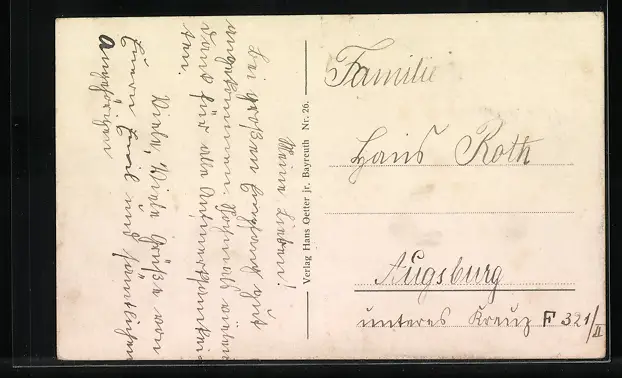 Meine Lieben!
Bei gut
angekommen. Nochmals vielen
Dank für alle Aufmerksamkei-
ten.
Viele, Viele Grüße von
Eurem Emil und sämtlichen
Angehörigen
Verlag Hans Oetter jr. Bayreuth Nr. 26.
Familie
Hans Roth
Augsburg
unteres Kreuz F 321/II